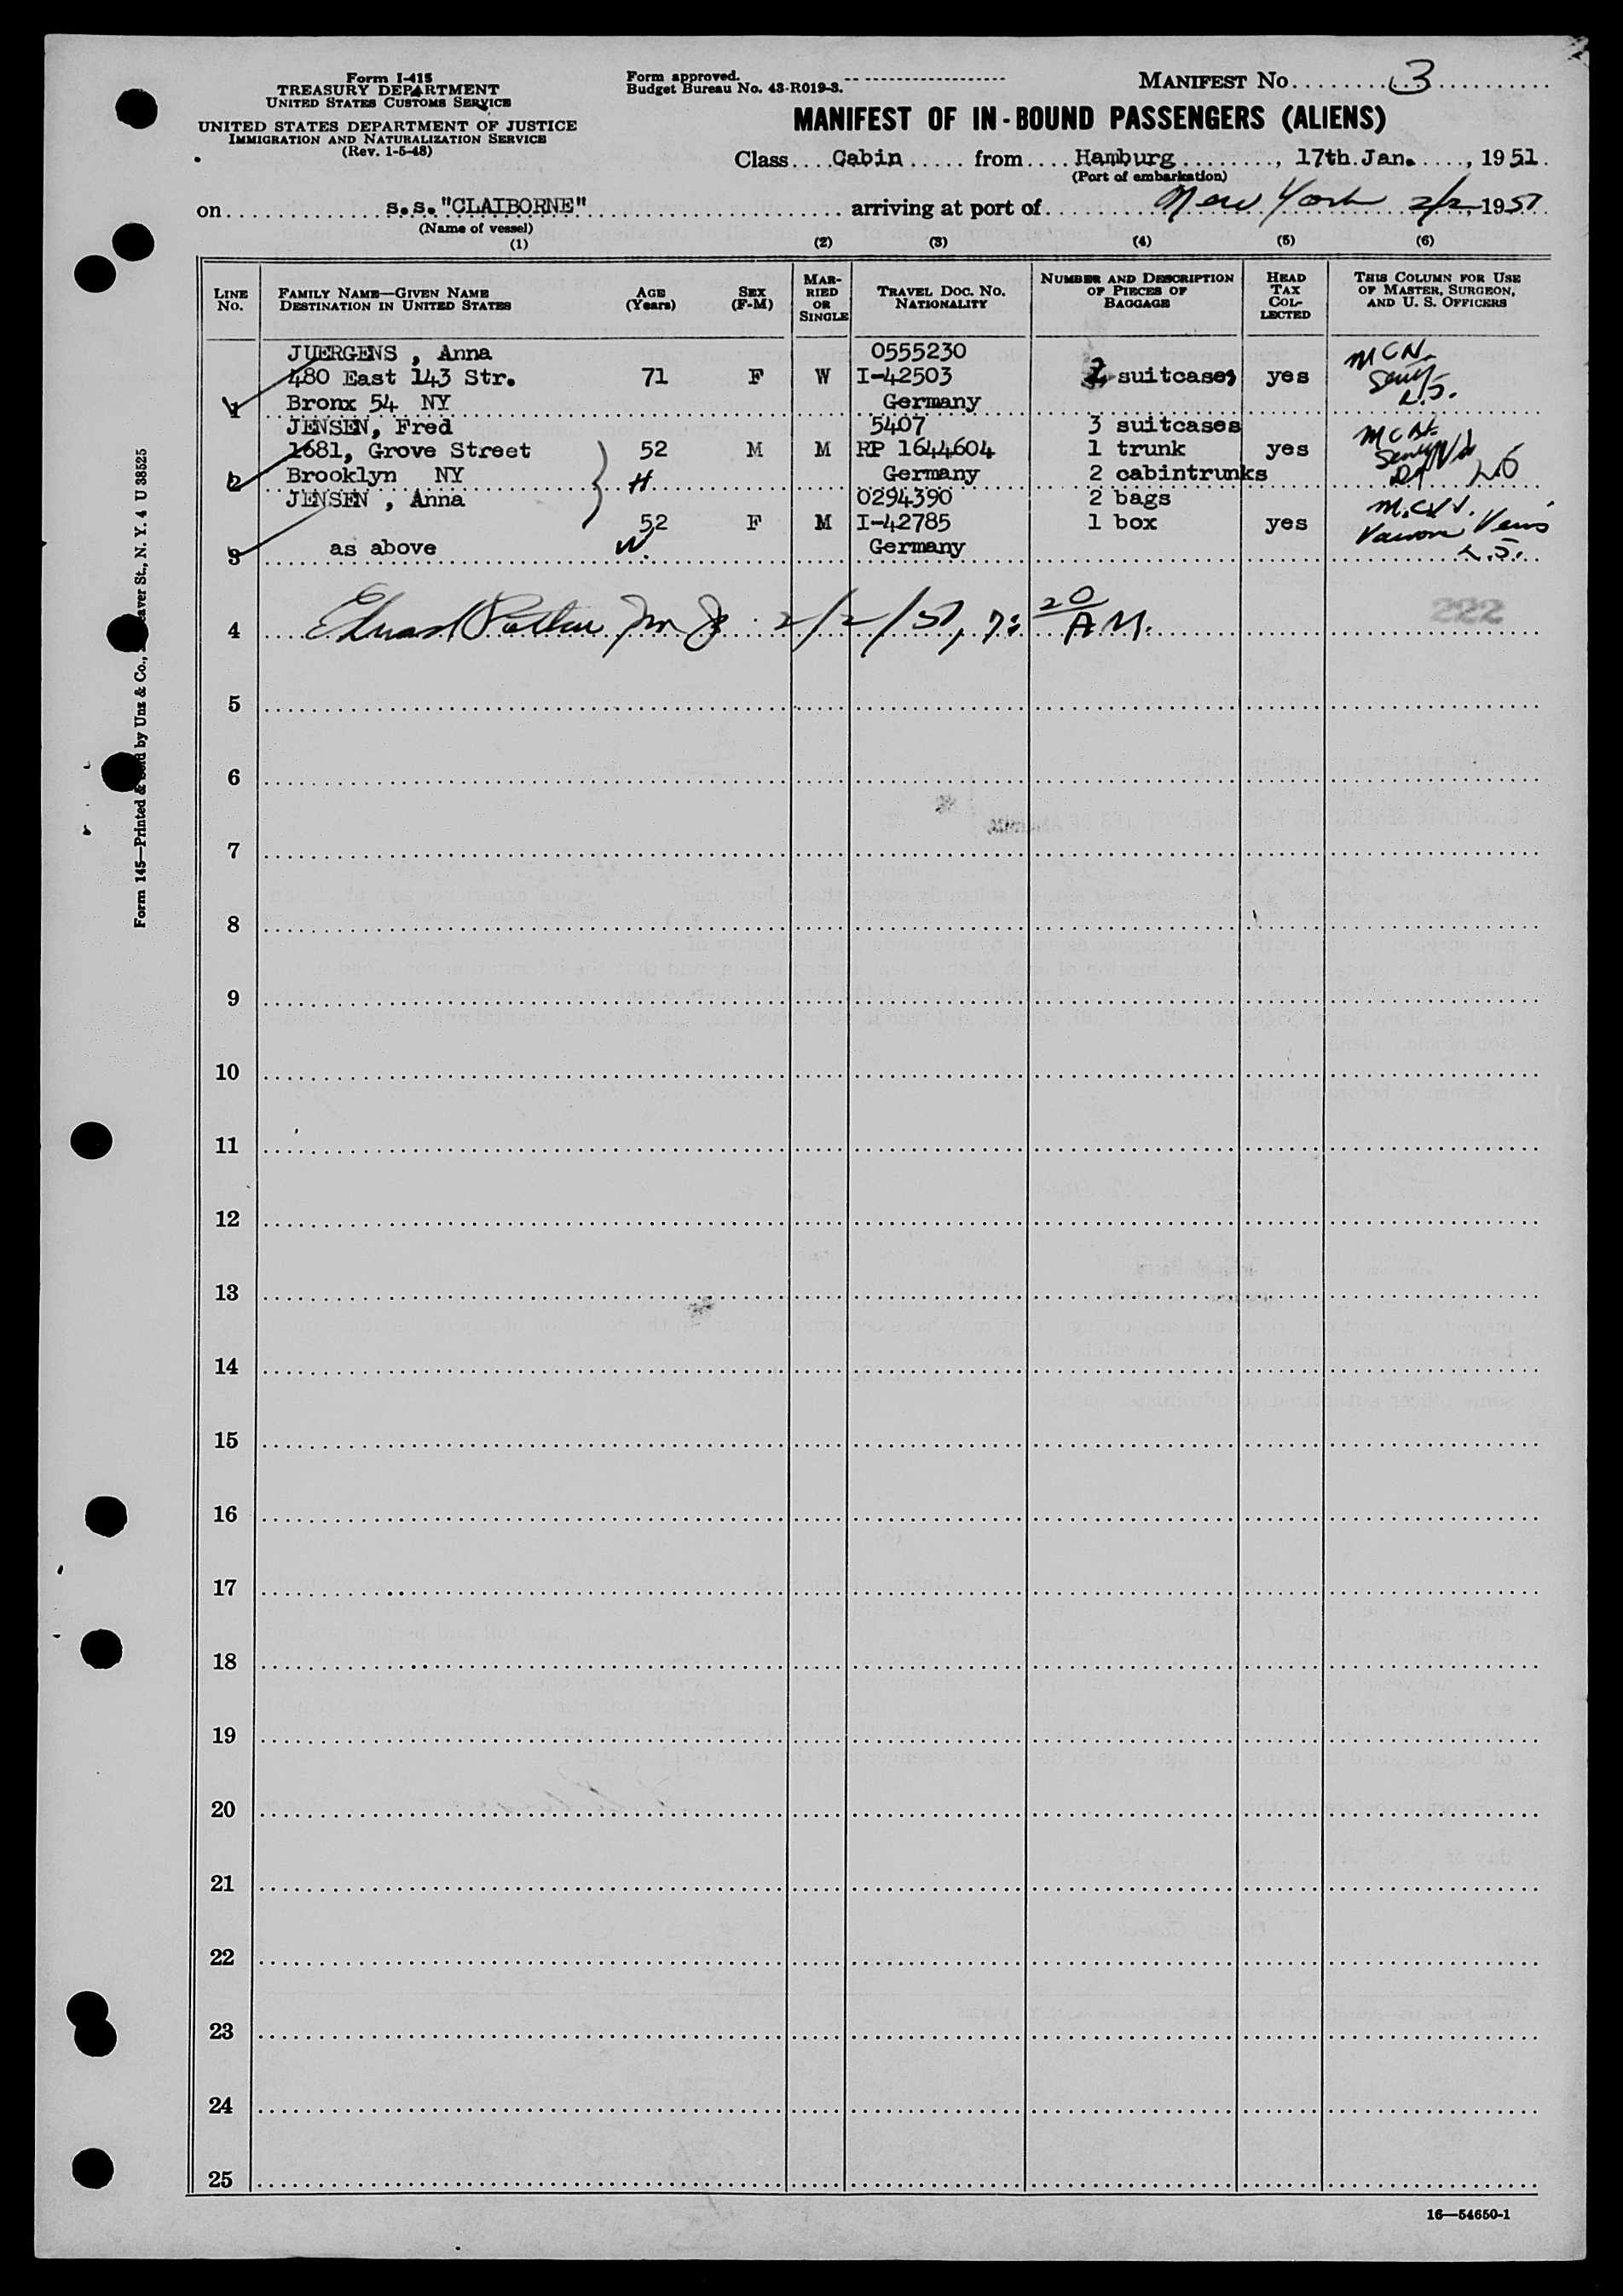 Form I-415
TREASURY DEPARTMENT
UNITED STATES CUSTOMS SERVICE
UNITED STATES DEPARTMENT OF JUSTICE
IMMIGRATION AND NATURALIZATION SERVICE
(Rev. 1-5-48)
Form approved.
Budget Bureau No. 43-R019-3.
MANIFEST No. 3
MANIFEST OF IN-BOUND PASSENGERS (ALIENS)
Class Cabin from Hamburg, 17th Jan., 1951
(Port of embarkation)
on s.s."CLAIBORNE" arriving at port of New York 2/2, 1951
(Name of vessel)
(1) (2) (3) (4) (5) (6)
LINE No. FAMILY NAME—GIVEN NAME DESTINATION IN UNITED STATES AGE (Years) SEX (F-M) MARRIED OR SINGLE TRAVEL DOC. NO. NATIONALITY NUMBER AND DESCRIPTION OF PIECES OF BAGGAGE HEAD TAX COLLECTED THIS COLUMN FOR USE OF MASTER, SURGEON, AND U. S. OFFICERS
JUERGENS , Anna 0555230
480 East 143 Str. 71 F W I-42503 2 suitcases yes
1 Bronx 54 NY Germany
JENSEN, Fred 5407 3 suitcases
1681, Grove Street 52 M M RP 1644604 1 trunk yes
2 Brooklyn NY H Germany 2 cabintrunks
JENSEN , Anna 0294390 2 bags
52 F M I-42785 1 box yes
3 as above W. Germany
4 2/2/51, 7:20 A.M. 222
5
6
7
8
9
10
11
12
13
14
15
16
17
18
19
20
21
22
23
24
25
16—54650-1
Form 145—Printed & Sold by Unz & Co., eaver St., N. Y. 4 U 38525